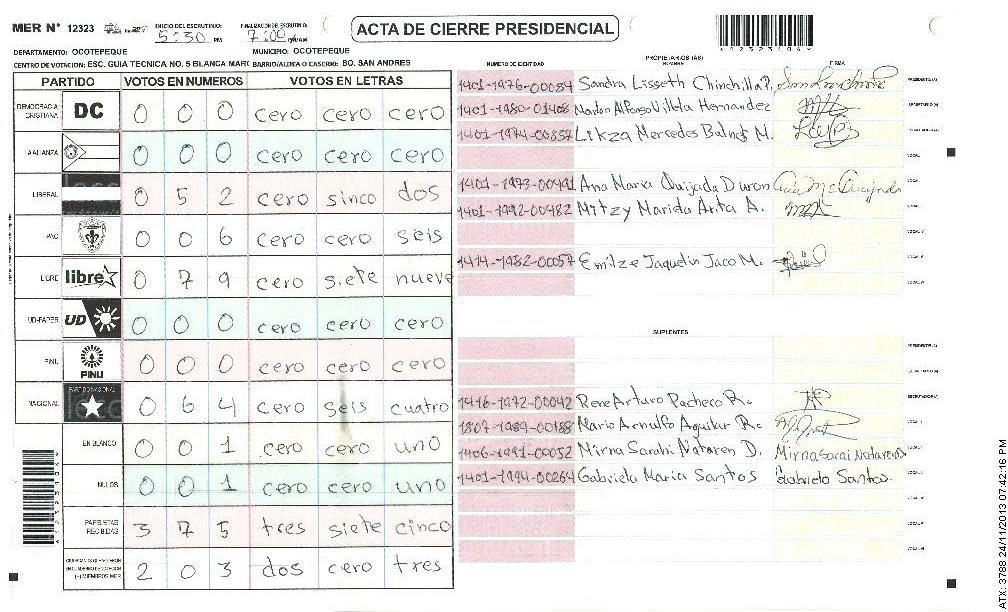 MER N° 12323
INICIO DEL ESCRUTINIO: 5:30 PM
FINALIZACION DE ESCRUTINIO: 7:00 PM/AM
ACTA DE CIERRE PRESIDENCIAL
DEPARTAMENTO: OCOTEPEQUE MUNICIPIO: OCOTEPEQUE
CENTRO DE VOTACION: ESC. GUIA TECNICA NO. 5 BLANCA MARC BARRIO/ALDEA O CASERIO: BO. SAN ANDRES
PARTIDO VOTOS EN NUMEROS VOTOS EN LETRAS
DEMOCRACIA CRISTIANA DC 0 0 0 cero cero cero
AALIANZA 0 0 0 cero cero cero
LIBERAL 0 5 2 cero sinco dos
PAC 0 0 6 cero cero seis
LIBRE libre 0 7 9 cero siete nueve
UD-FAPER UD 0 0 0 cero cero cero
PINU PINU 0 0 0 cero cero cero
NACIONAL PARTIDO NACIONAL 0 6 4 cero seis cuatro
EN BLANCO 0 0 1 cero cero uno
NULOS 0 0 1 cero cero uno
PAPELETAS RECIBIDAS 3 7 5 tres siete cinco
(+) MIEMBROS MER 2 0 3 dos cero tres
PROPIETARIOS (AS)
NUMERO DE IDENTIDAD NOMBRE FIRMA
1401-1976-00084 Sandra Lisseth Chinchilla P. PRESIDENTE(A)
1401-1980-01408 Marlon Alfonso Villeta Hernandez SECRETARIO(A)
1401-1974-00857 Mercedes M.
1401-1973-00491 Ana Maria Quijada Duron
1401-1992-00482 Mitzy Marida Arita A.
1414-1982-00057 Emilze Jaquelin Jaco M.
SUPLENTES
PRESIDENTE(A)
SECRETARIO(A)
1416-1972-00042 Rene Arturo Pacheco R. ESCRUTADOR(A)
1807-1989-00188 Mario Arnulfo Aguilar R.
1406-1991-00052 Mirna Sarahi Nataren D. Mirna Sarai Nataren D
1401-1994-00264 Gabriela Maria Santos Gabriela Santos.
ATX: 3788 24/11/2013 07:42:16 PM